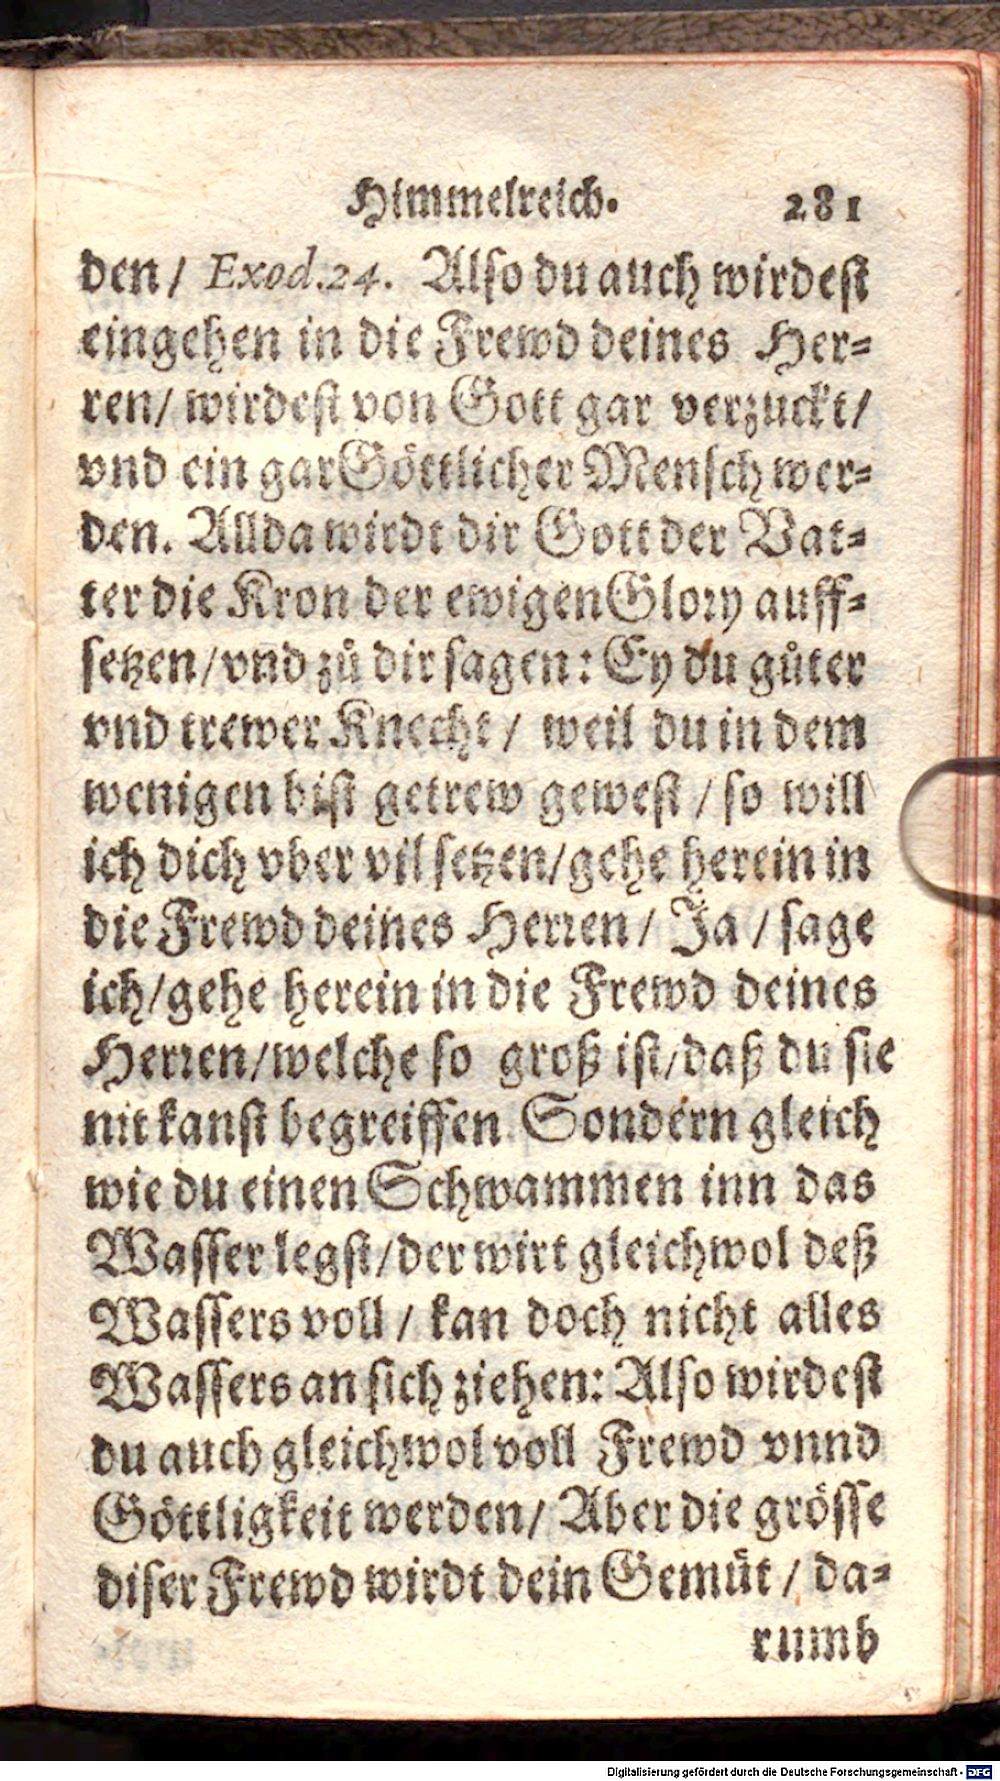 Himmelreich. 281
den / Exod. 24. Also du auch wirdest
eingehen in die Frewd deines Her-
ren / wirdest von Gott gar verzuckt /
vnd ein gar Göttlicher Mensch wer-
den. Allda wirdt dir Gott der Vat-
ter die Kron der ewigen Glory auff-
setzen / vnd zů dir sagen: Ey du gůter
vnd trewer Knecht / weil du in dem
wenigen bist getrew gewest / so will
ich dich vber vil setzen / gehe herein in
die Frewd deines Herren / Ja / sage
ich / gehe herein in die Frewd deines
Herren / welche so groß ist / daß du sie
nit kanst begreiffen Sondern gleich
wie du einen Schwammen inn das
Wasser legst / der wirt gleichwol deß
Wassers voll / kan doch nicht alles
Wassers an sich ziehen: Also wirdest
du auch gleichwol voll Frewd vnnd
Göttligkeit werden / Aber die grösse
diser Frewd wirdt dein Gemüt / da-
rumb
Digitalisierung gefördert durch die Deutsche Forschungsgemeinschaft - DFG